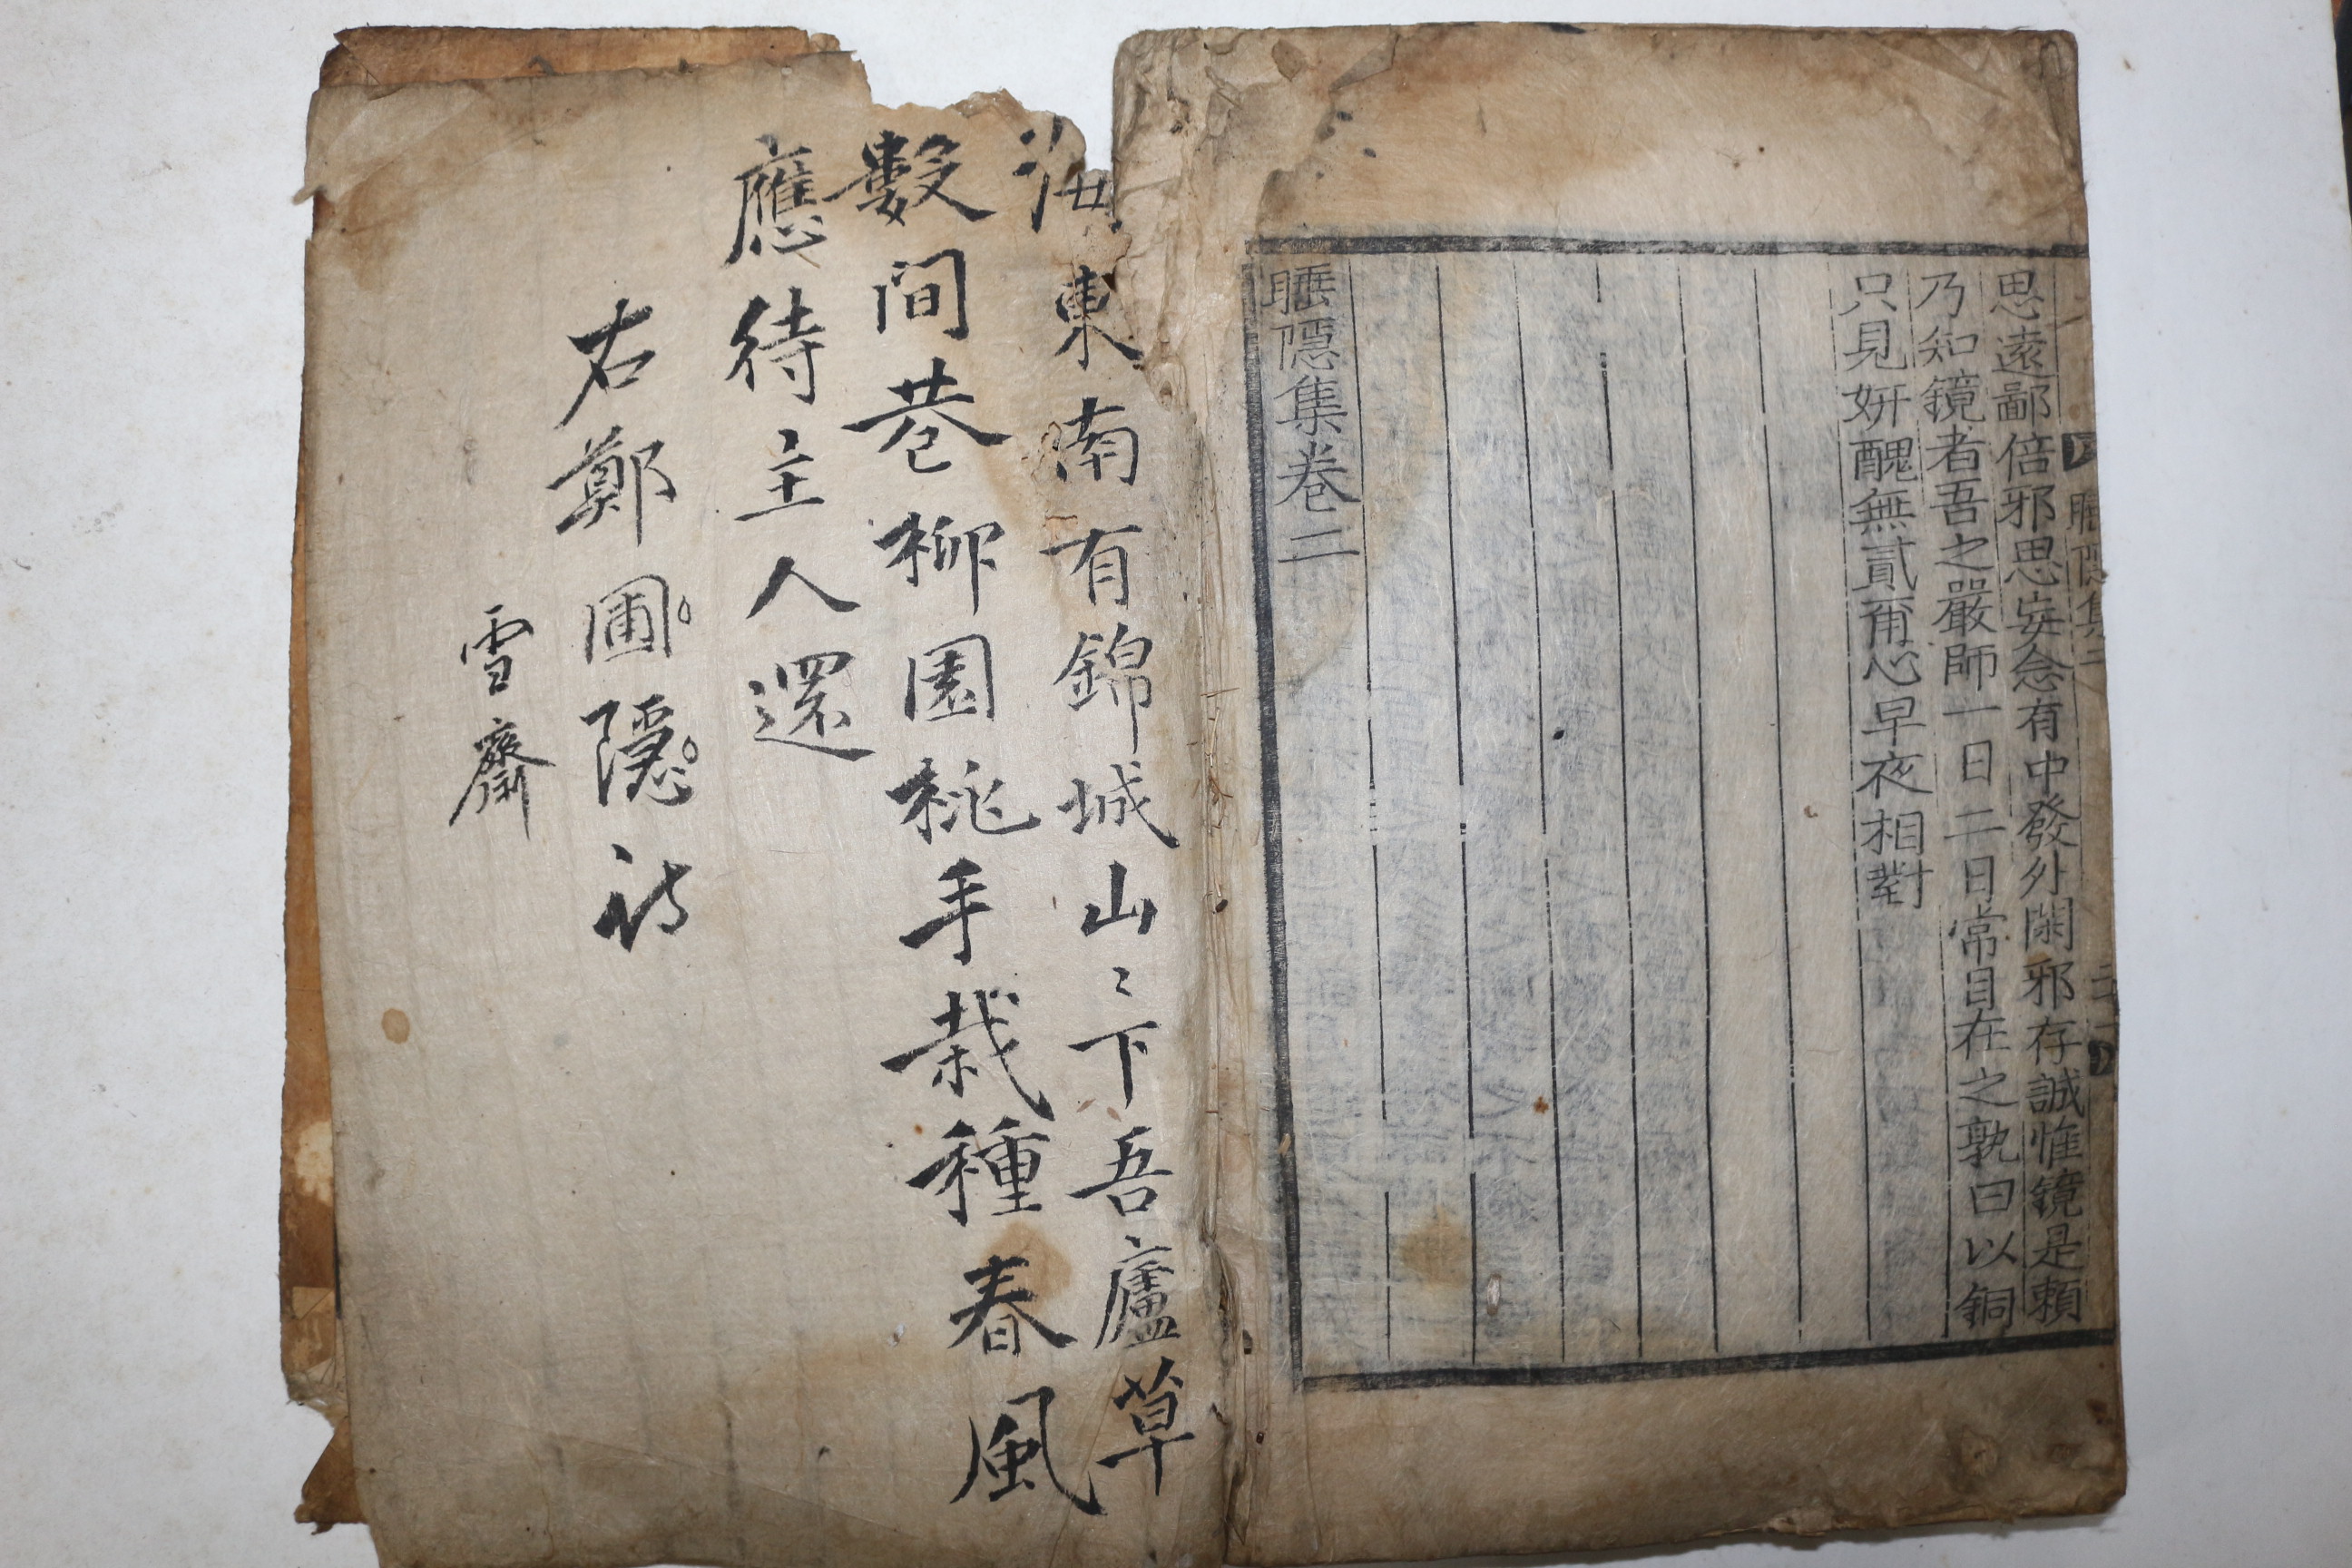 睡隱集二
思遠鄙倍邪思妄念有中發外閑邪存誠惟鏡是賴
乃知鏡者吾之嚴師一日二日常目在之孰曰以銅
只見姸醜無貳甭心早夜相對
睡隱集卷二
海東南有錦城山〻下吾廬草
數間巷柳園桃手栽種春風
應待主人還
右鄭圃隱詩
雪齋